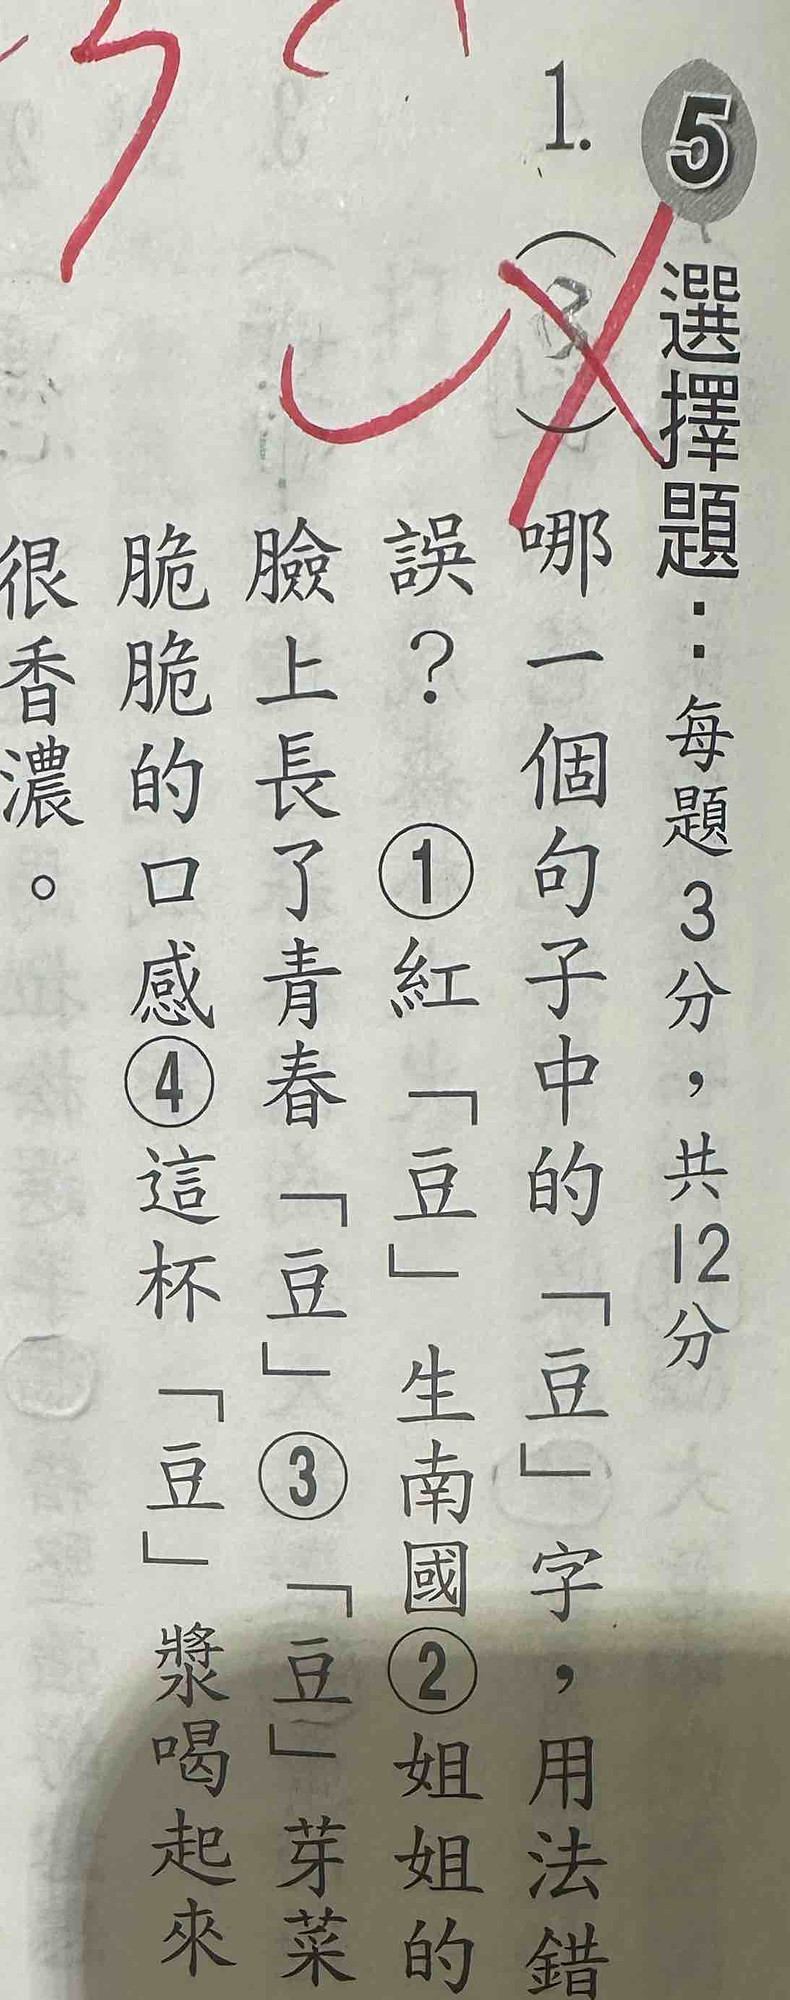 5 選擇題：每題3分，共12分
1. (3) 哪一個句子中的「豆」字，用法錯
誤？ ①紅「豆」生南國②姐姐的
臉上長了青春「豆」③「豆」芽菜
脆脆的口感④這杯「豆」漿喝起來
很香濃。